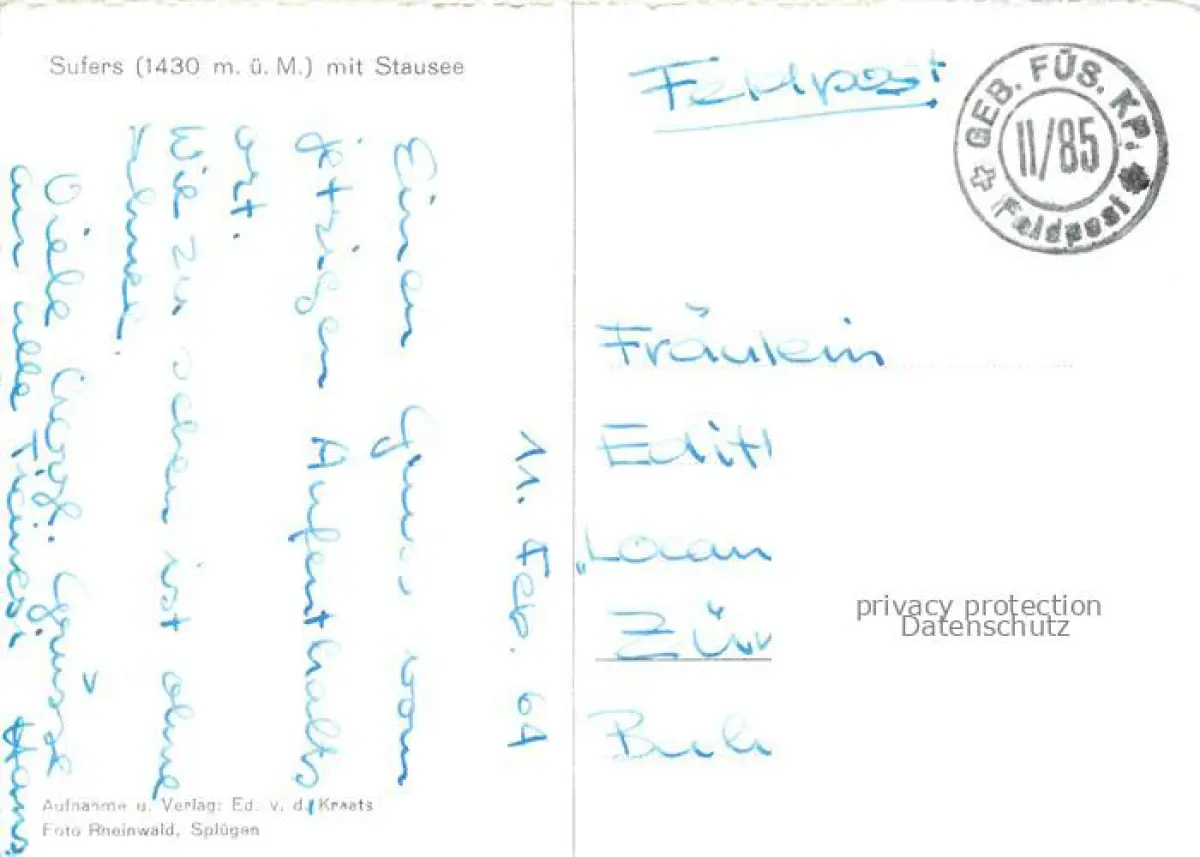 Sufers (1430 m. ü. M.) mit Stausee
11. Feb. 64
Einen Gruss vom
jetzigen Aufenthalts
ort.
Wie zu sehen ist ohne
Viele Grüsse
an alle Hans
Aufnahme u. Verlag: Ed. v. d. Kraats
Foto Rheinwald, Splügen
Feldpost
GEB. FÜS. KP.
II/85
Feldpost
Fräulein
Edith
"Locan
Zür
Buch
privacy protection
Datenschutz